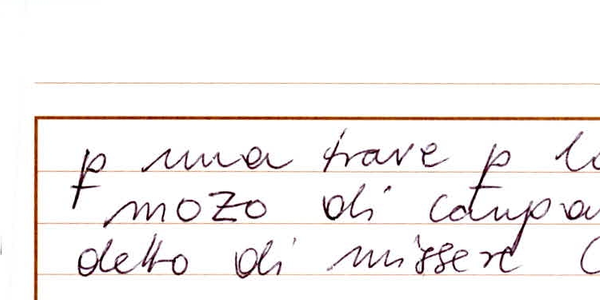 p una trave p
mozo di
detto di missere